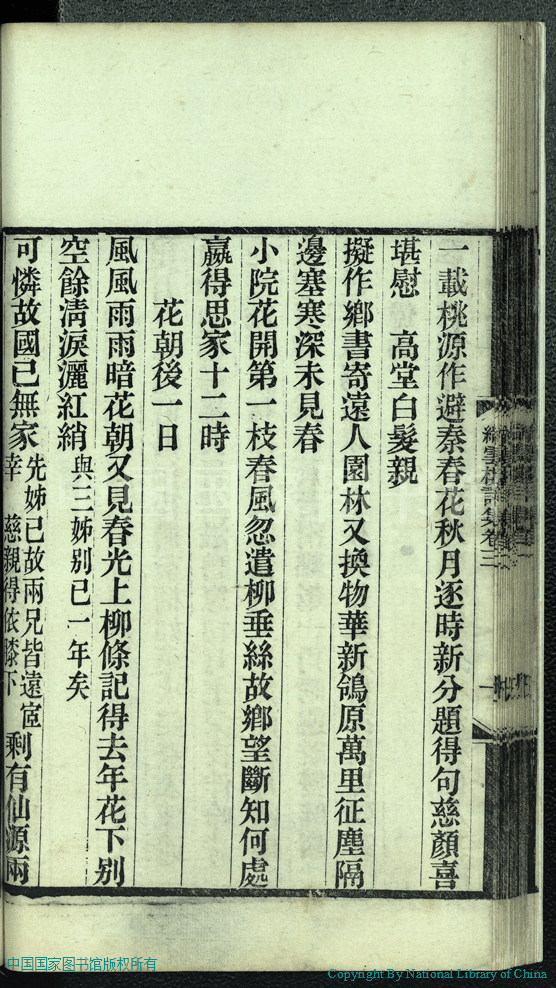 一載桃源作避秦春花秋月逐時新分題得句慈顏喜
堪慰　高堂白髮親
擬作鄉書寄遠人園林又換物華新鴒原萬里征塵隔
邊塞寒深未見春
小院花開第一枝春風忽遣柳垂絲故鄉望斷知何處
贏得思家十二時
花朝後一日
風風雨雨暗花朝又見春光上柳條記得去年花下別
空餘清淚灑紅綃 與三姊別已一年矣
可憐故國已無家 先姊已故兩兄皆遠宦
幸　慈親得依膝下 剩有仙源兩
詩集卷三
中国国家图书馆版权所有
Copyright By National Library of China